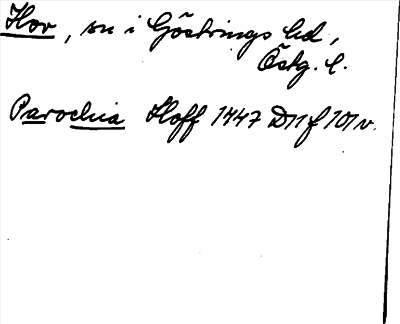 Hov, sn i Göstrings hd,
Östg. l.
Parochia Hoff 1447 D11 f 101 v.